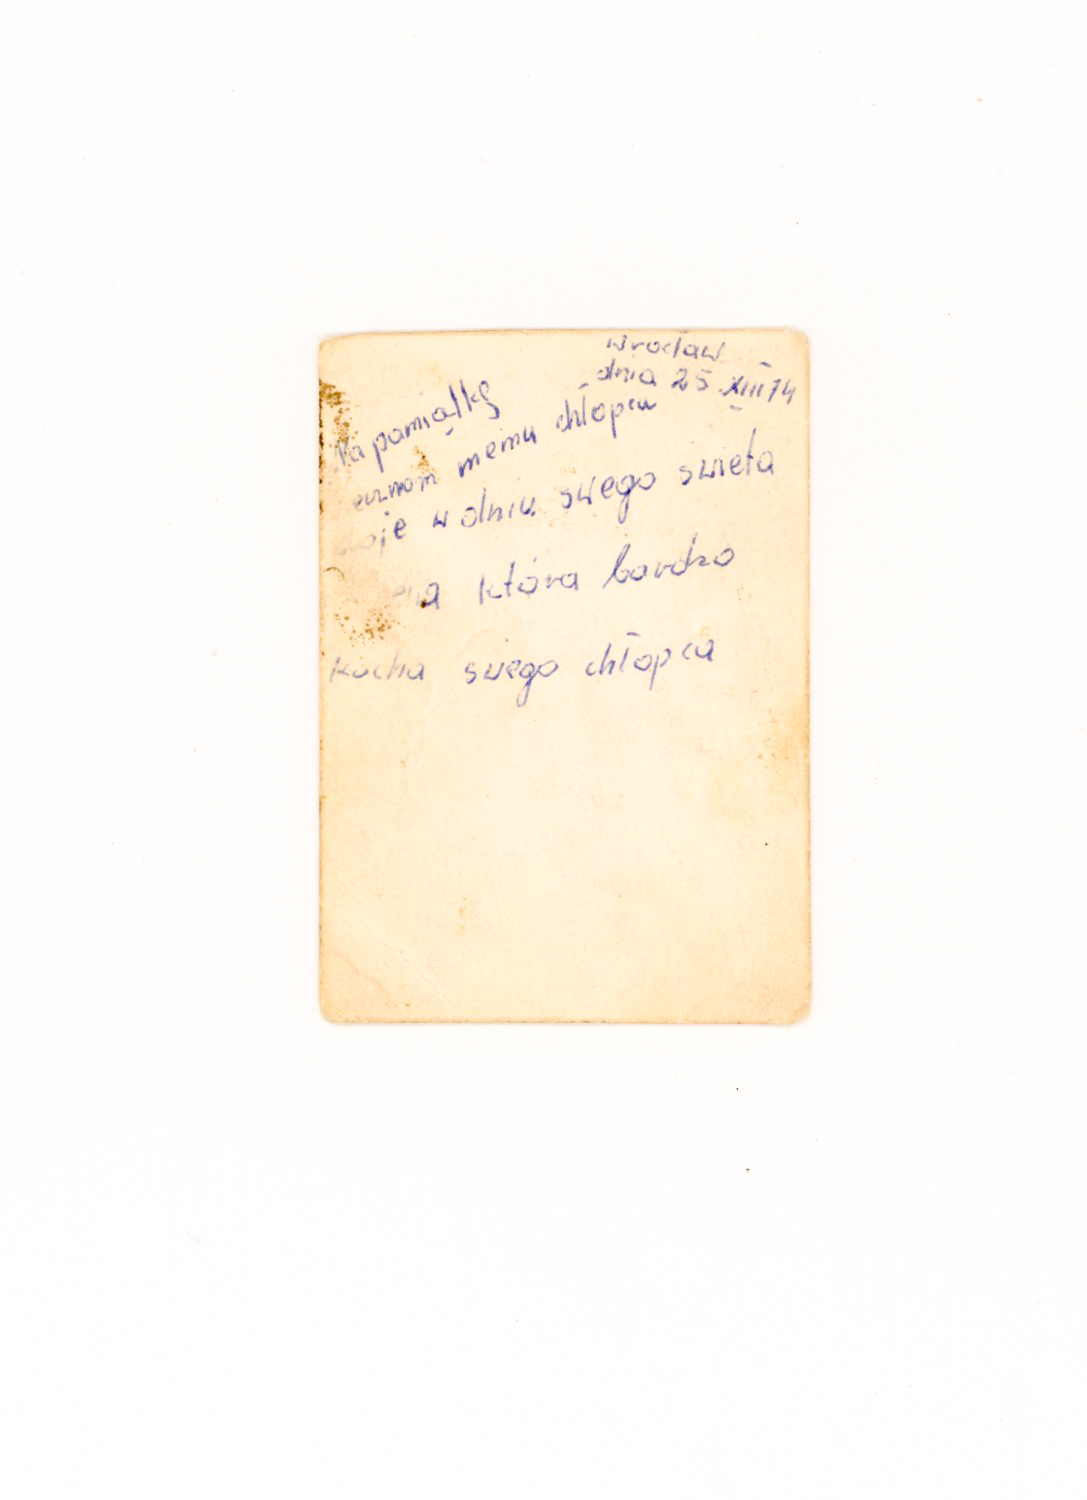 wrocław
dnia 25 XII 74
Na pamiątkę
memu chłopcu
w dniu swego swieta
która bardzo
kocha swego chłopca